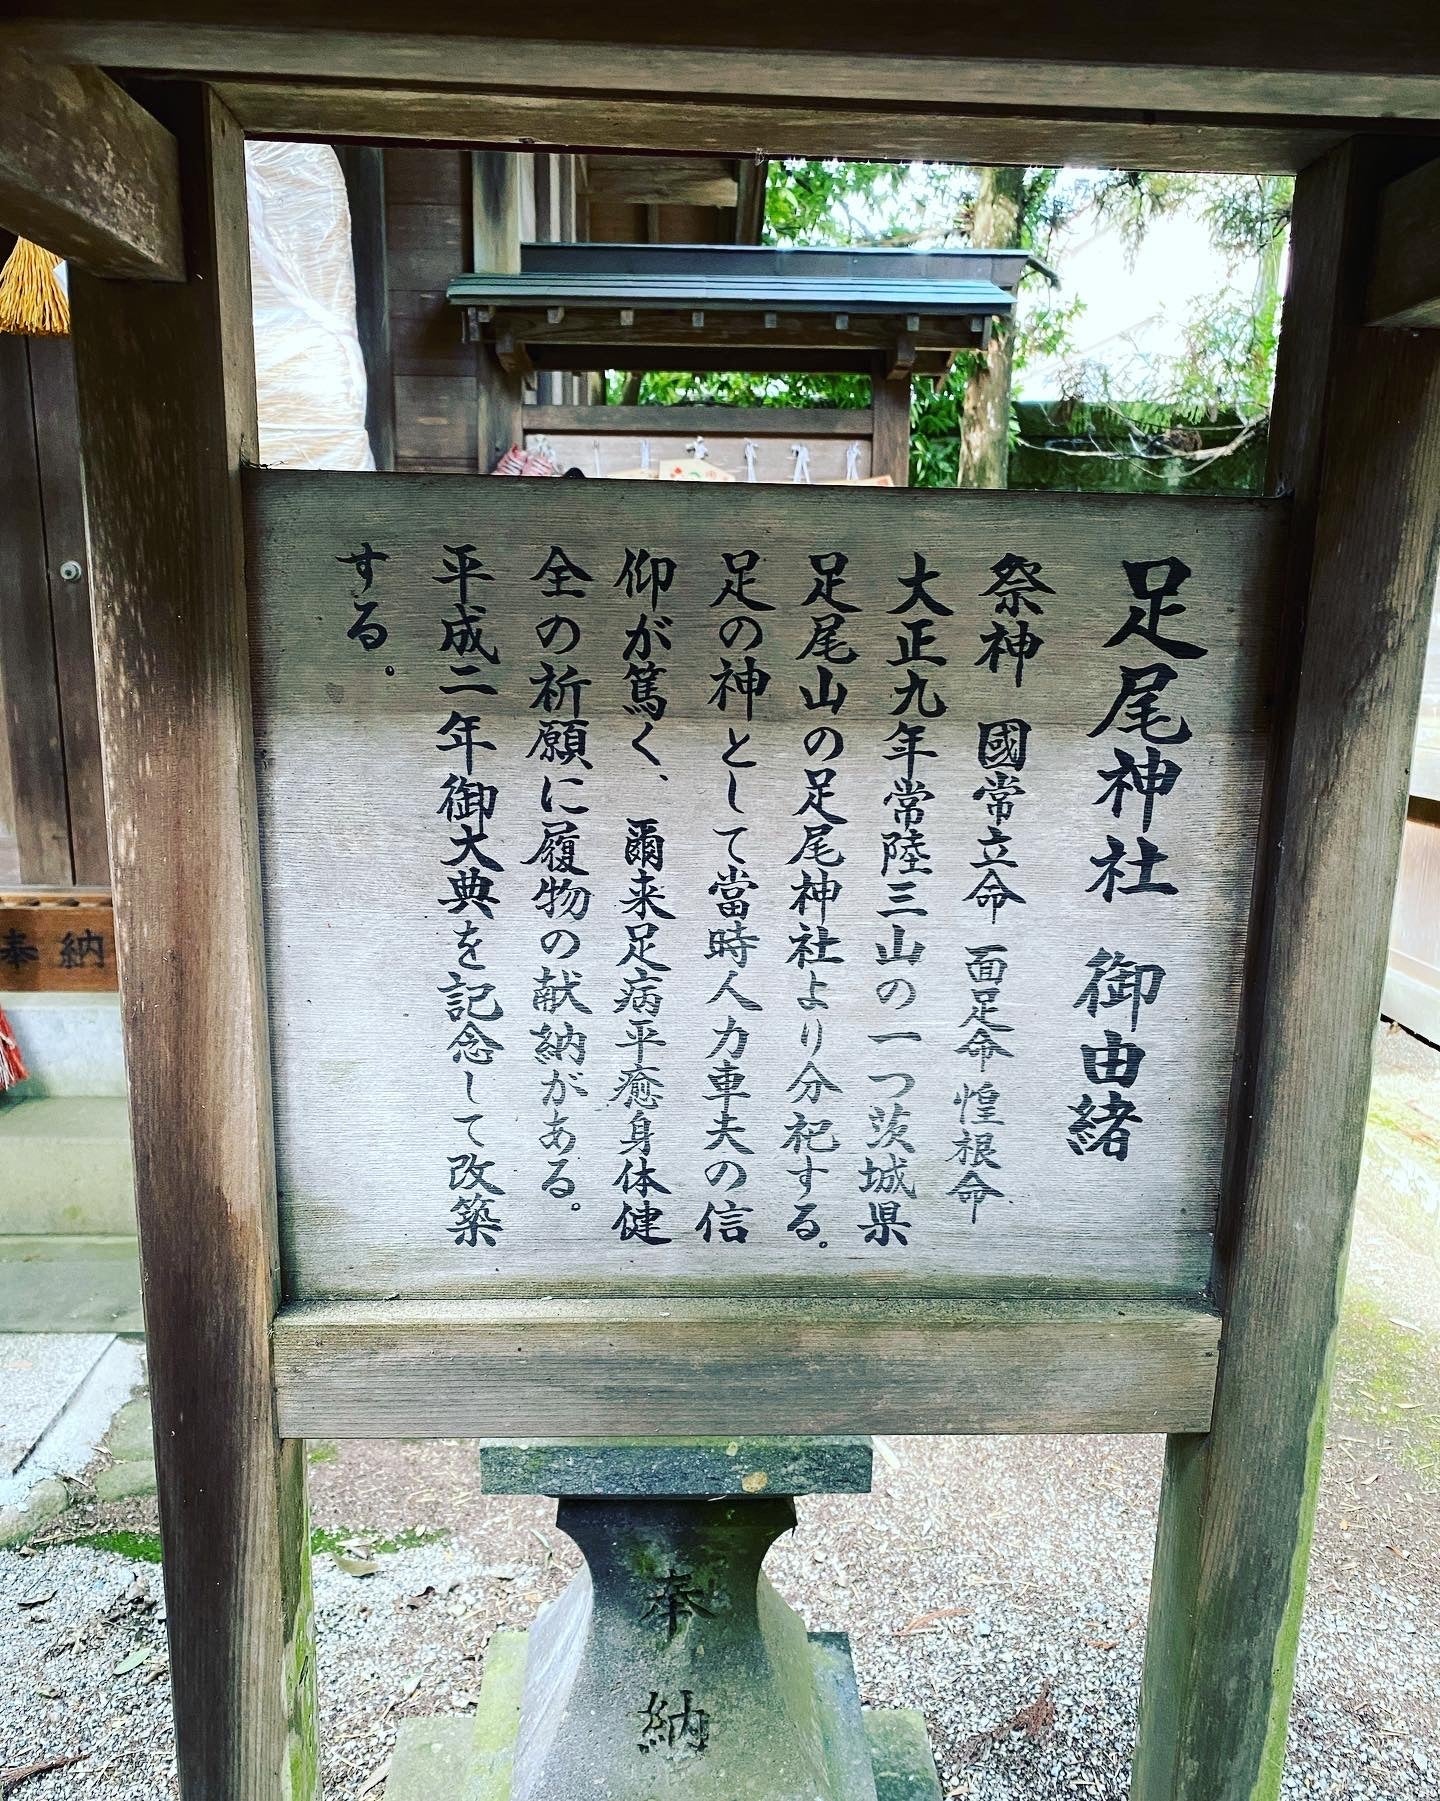 足尾神社 御由緒
祭神 國常立命 面足命 惶根命
大正九年常陸三山の一つ茨城県
足尾山の足尾神社より分祀する。
足の神として當時人力車夫の信
仰が篤く、爾来足病平癒身体健
全の祈願に履物の献納がある。
平成二年御大典を記念して改築
する。
奉納
奉納